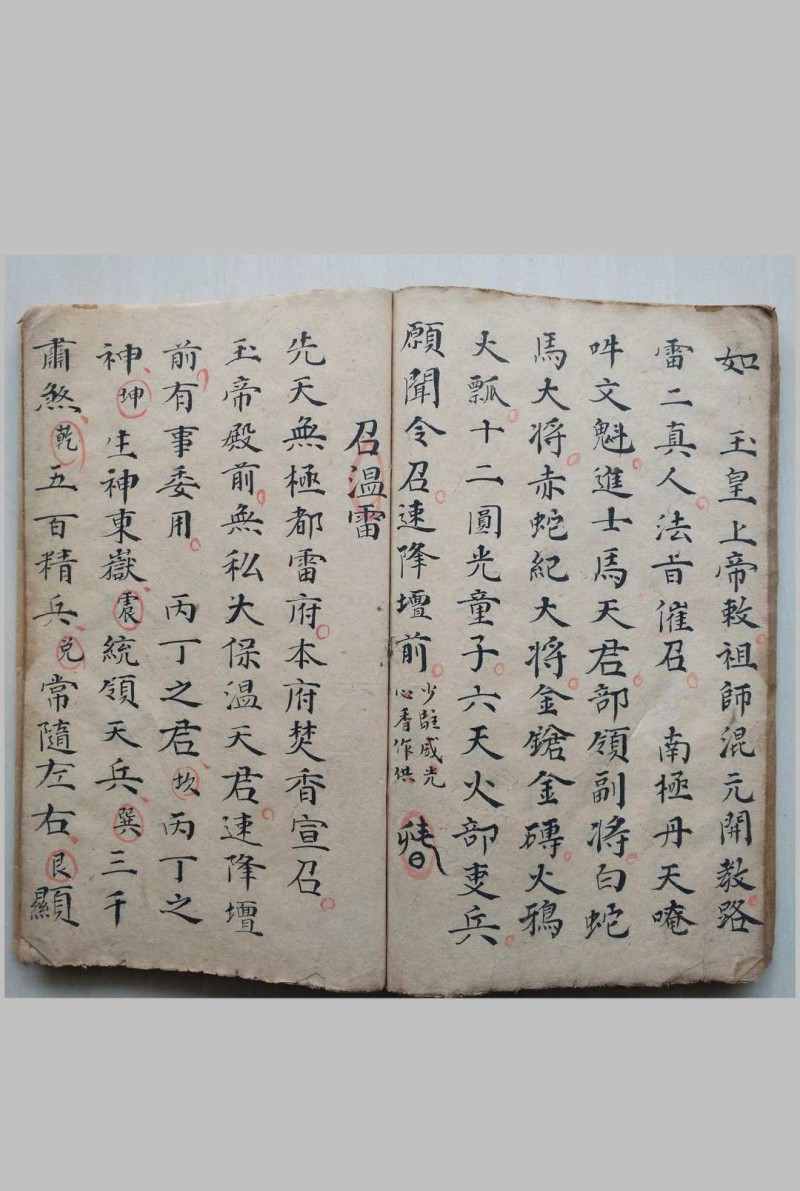 如 玉皇上帝敕祖師混元開教路
雷二真人法旨催召 南極丹天唵
吽文魁進士馬天君部領副將白蛇
馬大將赤蛇紀大將金鎗金磚火鴉
火瓢十二圓光童子六天火部吏兵
願聞令召速降壇前 少駐威光
心香作供
召溫雷
先天無極都雷府本府焚香宣召
玉帝殿前無私大保溫天君速降壇
前有事委用 丙丁之君坎丙丁之
神坤生神東嶽震統領天兵巽三千
肅煞乾五百精兵兌常隨左右艮顯